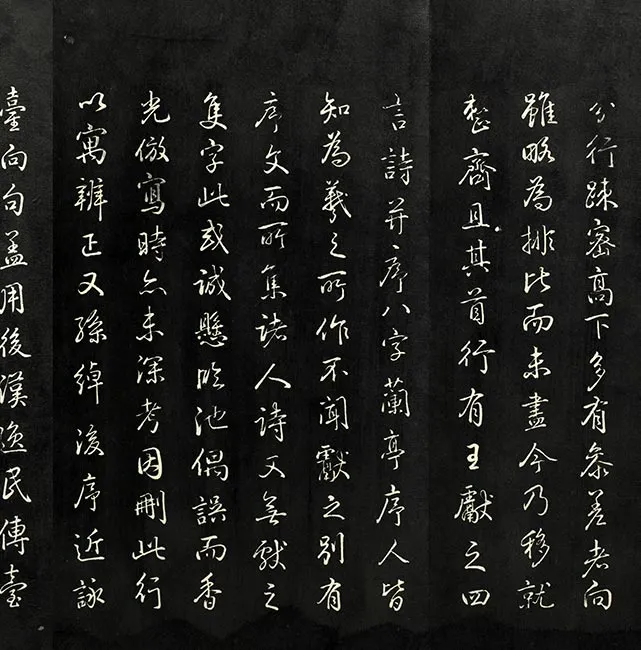 分行疎密高下多有參差者向
雖略為排比而未盡今乃移就
整齊且其首行有王獻之四
言詩并序八字蘭亭序人皆
知為羲之所作不聞獻之別有
序文而所集諸人詩又無獻之
隻字此或誠懸臨池偶誤而香
光倣寫時亦未深考因刪此行
以寓辨正又孫綽後序近詠
臺向句孟用後漢逸民傳臺